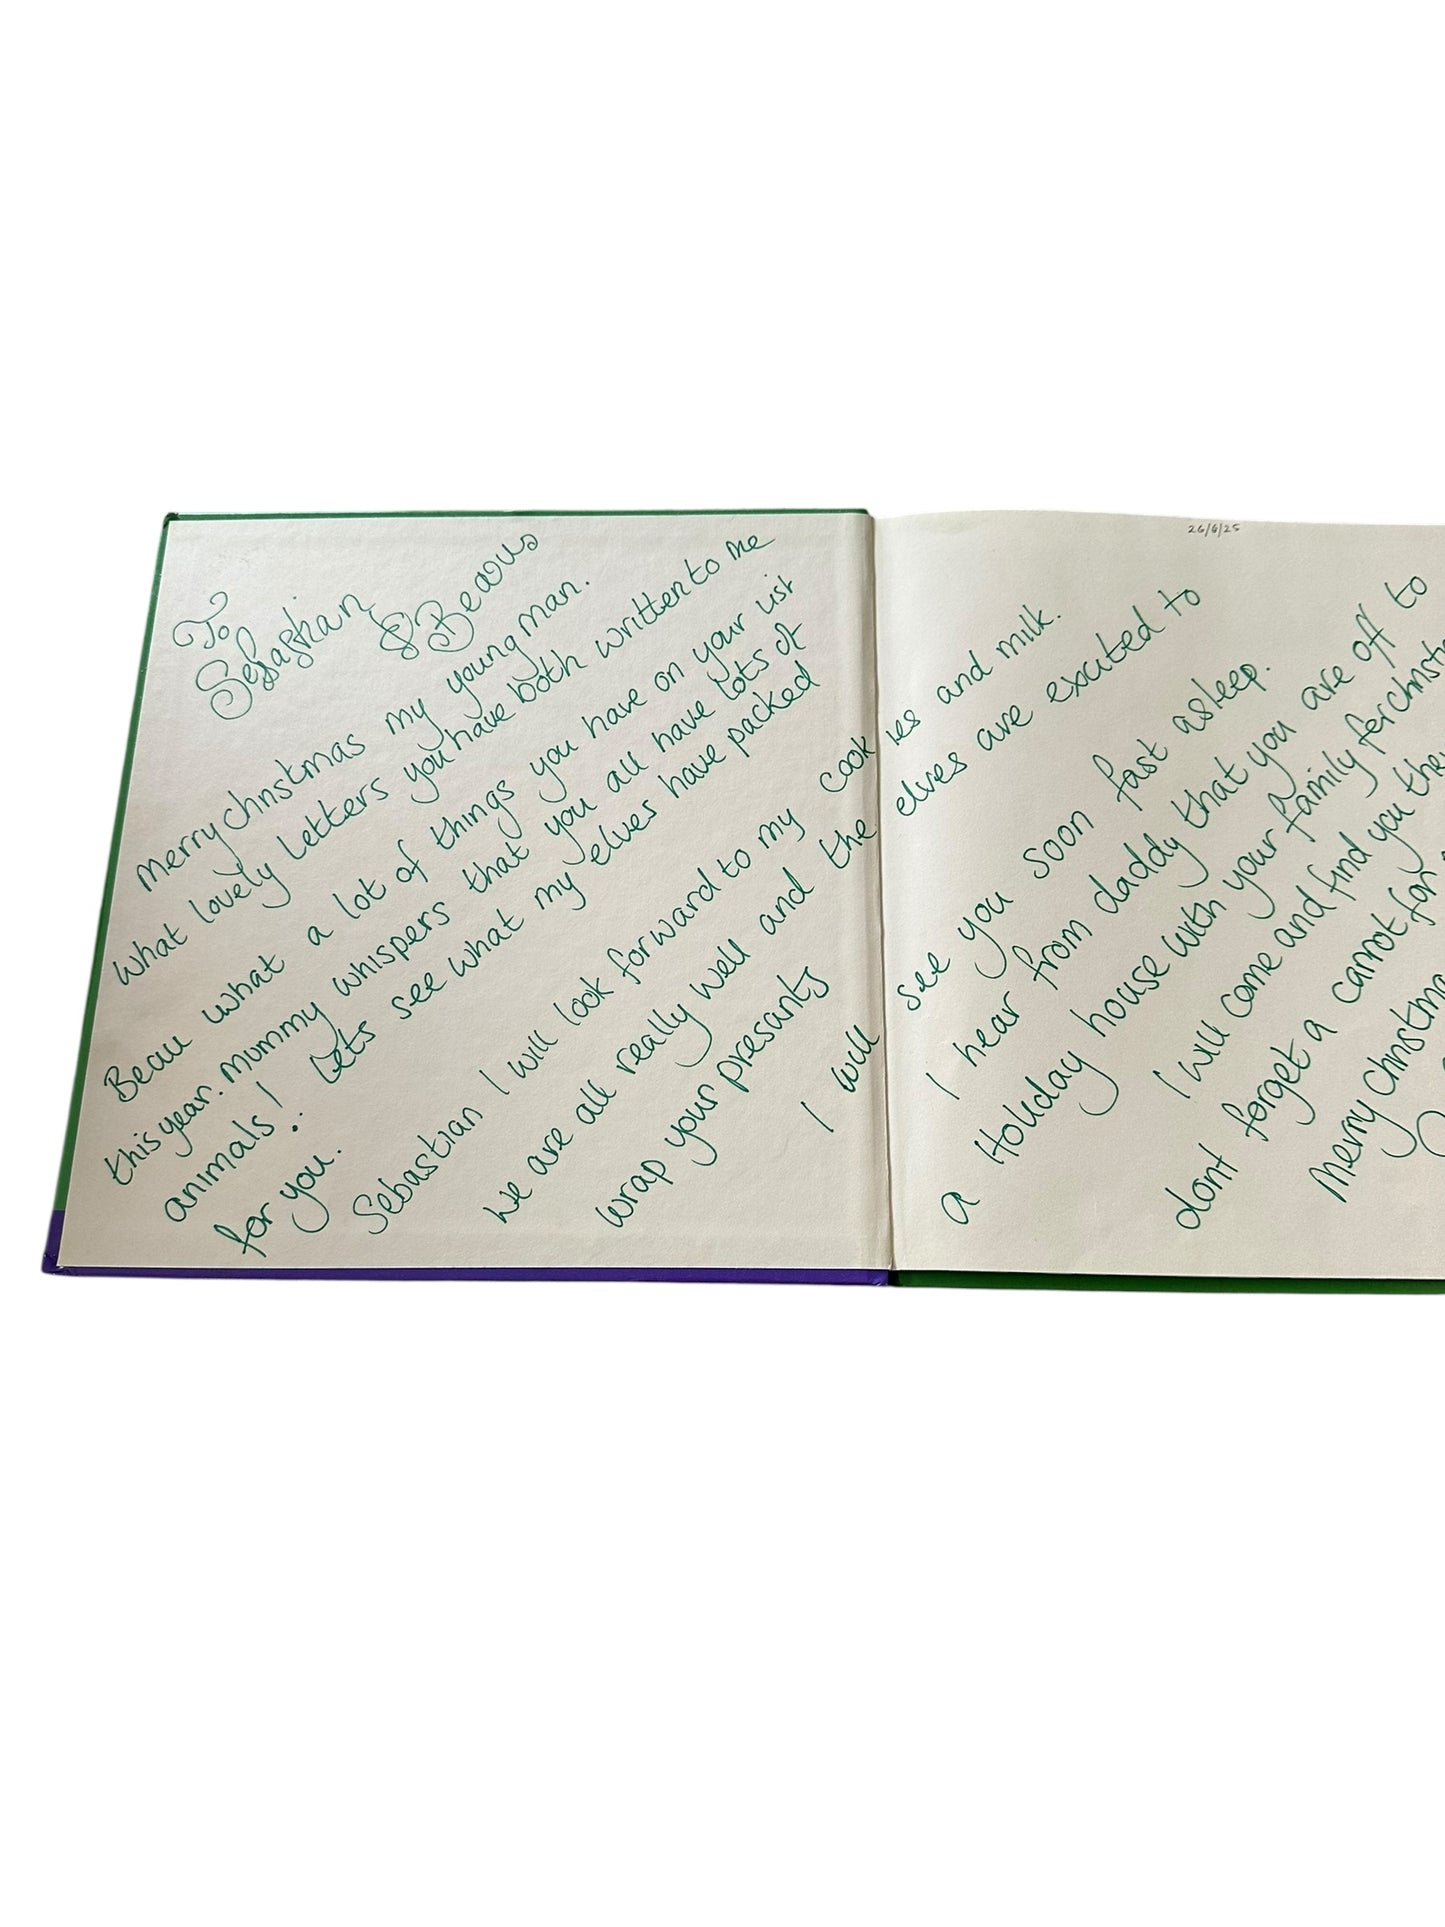 26/6/25
To
Sebastian
& Beaus
Merry christmas my young man.
What lovely letters you have both written to me
Beau what a lot of things you have on your list
this year. mummy whispers that you all have lots of
animals! Lets see what my elves have packed
for you.
Sebastian I will look forward to my cookies and milk.
We are all really well and the elves are excited to
wrap your presants
I will see you soon fast asleep.
I hear from daddy that you are off to
a Holiday house with your family for
I will come and find you
dont forget a carrot for
Merry